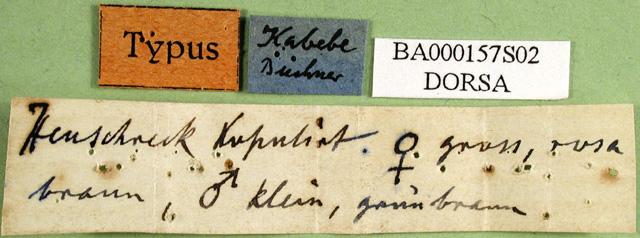 Typus
Kabebe
Büchner
BA000157S02
DORSA
Heuschreck Kopulirt. ♀ gross, rosa
braun, ♂ klein, grünbraun